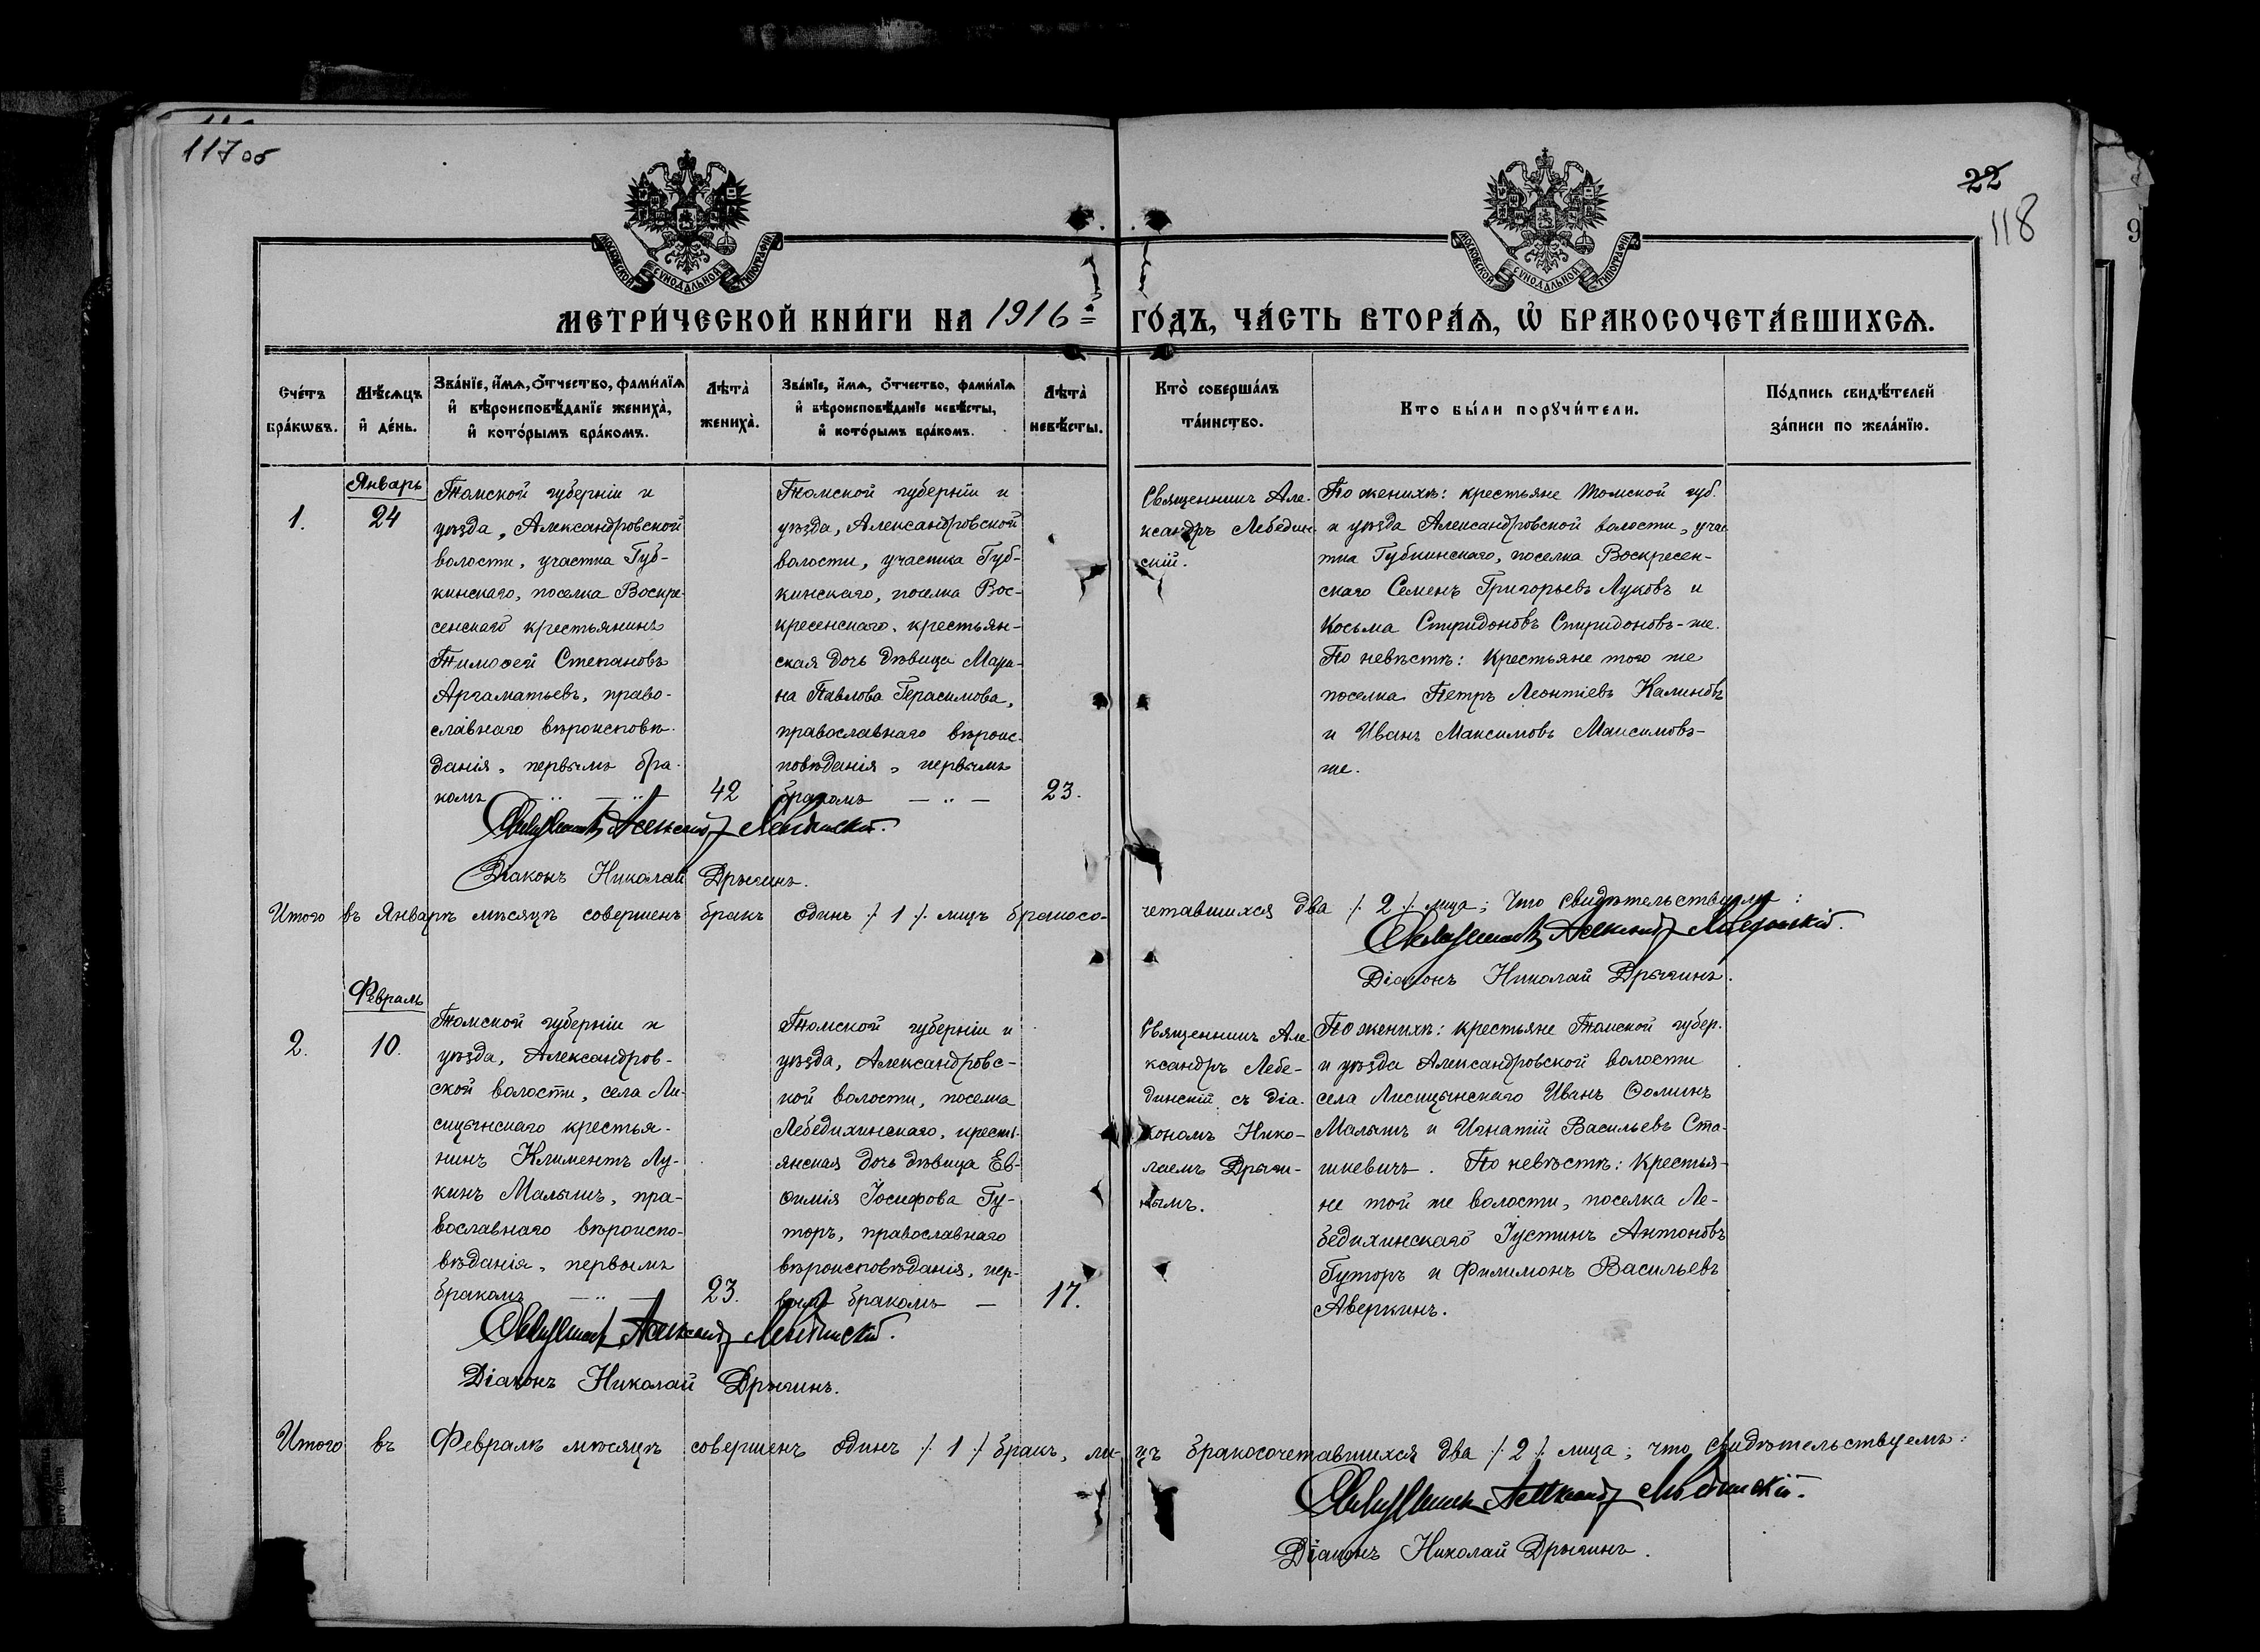 117 об
22
118
МОСКОВСКОЙ СѴНОДАЛЬНОЙ ТИПОГРАФІИ
МОСКОВСКОЙ СѴНОДАЛЬНОЙ ТИПОГРАФІИ
МЕТРИ́ЧЕСКОЙ КНИ́ГИ НА 1916 = ГО́ДЪ, ЧА́СТЬ ВТОРА́Ѧ, Ѡ҆ БРАКОСОЧЕТА́ВШИХСѦ.
Сче́тъ
бра́кѡвъ.
Мѣ́сѧцъ
и҆ де́нь.
Зва́нїе, и҆́мѧ, о҆́тчество, фами́лїѧ
и҆ вѣроисповѣ́данїе жениха̀,
и҆ кото́рымъ бра́комъ.
Лѣта̀
жениха̀.
Зва́нїе, и҆́мѧ, о҆́тчество, фами́лїѧ
и҆ вѣроисповѣ́данїе невѣ́сты,
и҆ кото́рымъ бра́комъ.
Лѣта̀
невѣ́сты.
Кто̀ соверша́лъ
та́инство.
Кто бы́ли порꙋчи́тели.
По́дпись свидѣ́телей
за́писи по жела́нїю.
Январь
1.
24
Томской губерніи и
уѣзда, Александровской
волости, участка Губ-
кинскаго, поселка Воскре-
сенскаго крестьянинъ
Тимоѳей Степановъ
Аргаматьевъ, право-
славнаго вѣроисповѣ-
данія, первымъ бра-
комъ — „ — „ —
42
Томской губерніи и
уѣзда, Александровской
волости, участка Губ-
кинскаго, поселка Вос-
кресенскаго, крестьян-
ская дочь дѣвица Мари-
на Павлова Герасимова,
православнаго вѣроис-
повѣданія, первымъ
бракомъ — „ —
23.
Священникъ Але-
ксандръ Лебедин-
скій.
По женихѣ: крестьяне Томской губ.
и уѣзда Александровской волости, учас
тка Губкинскаго, поселка Воскресен-
скаго Семенъ Григорьевъ Луковъ и
Косьма Спиридоновъ Спиридоновъ-же.
По невѣстѣ: Крестьяне того же
поселка Петръ Леонтіевъ Калиновъ
и Иванъ Максимовъ Максимовъ-
же.
Священникъ Александръ Лебединскій.
Діаконъ Николай Дрыгинъ.
Итого въ Январѣ мѣсяцѣ совершенъ бракъ одинъ /. 1 /. лицъ бракосо-четавшихся два /. 2 /. лица; Что свидѣтельствуемъ:
Священникъ Александръ Лебединскій.
Діаконъ Николай Дрыгинъ.
Февраль
2.
10.
Томской губерніи и
уѣзда, Александров-
ской волости, села Ли-
сицынскаго крестья-
нинъ Климентъ Лу-
кинъ Малышъ, пра-
вославнаго вѣроиспо-
вѣданія, первымъ
бракомъ — „ —
23.
Томской губерніи и
уѣзда, Александровс-
кой волости, поселка
Лебедихинскаго, кресть-
янская дочь дѣвица Ев-
ѳимія Іосифова Гу-
торъ, православнаго
вѣроисповѣданія, пер-
вымъ бракомъ —
17.
Священникъ Але-
ксандръ Лебе-
динскій съ діа-
кономъ Нико-
лаемъ Дрыги-
нымъ.
По женихѣ: крестьяне Томской губер.
и уѣзда Александровской волости
села Лисицынскаго Иванъ Ѳоминъ
Малышъ и Игнатій Васильевъ Ста-
шкевичъ. По невѣстѣ: Крестья-
не той же волости, поселка Ле-
бедихинскаго Іустинъ Антоновъ
Гуторъ и Филимонъ Васильевъ
Аверкинъ.
Священникъ Александръ Лебединскій.
Діаконъ Николай Дрыгинъ.
Итого въ Февралѣ мѣсяцѣ совершенъ одинъ /. 1 /. бракъ, ли-цъ бракосочетавшихся два /. 2 /. лица; что свидѣтельствуемъ:
Священникъ Александръ Лебединскій.
Діаконъ Николай Дрыгинъ.